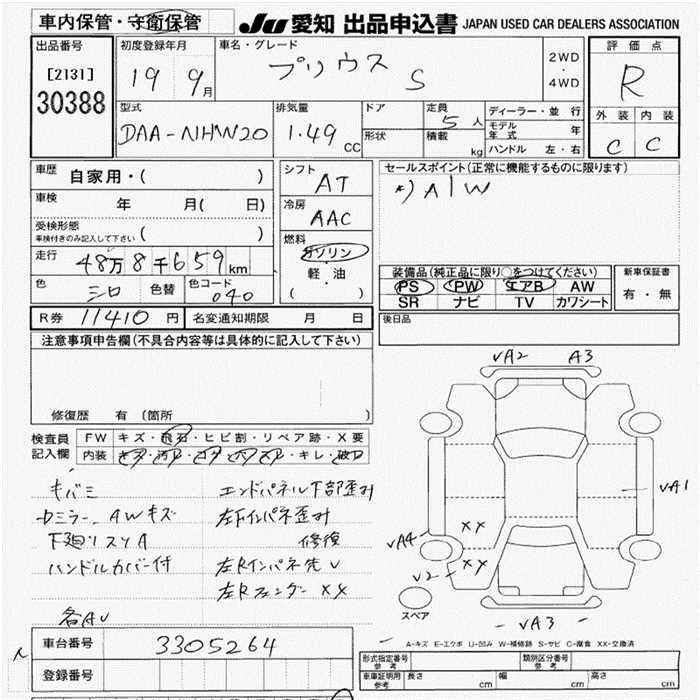 車内保管・守衛保管
JU 愛知 出品申込書 JAPAN USED CAR DEALERS ASSOCIATION
出品番号
[2131]
30388
初度登録年月
19 9月
車名・グレード
プリウス S
2WD
・
4WD
評価点
R
外装 内装
C C
型式
DAA-NHW20
排気量
1.49 CC
ドア
形状
定員 5人
積載 kg
ディーラー・並行
モデル年式 年
ハンドル 左・右
車歴 自家用・( )
車検 年 月( 日)
受検形態
車検付きのみ記入して下さい ( )
走行 48万8千659km
色 シロ 色替 色コード 040
シフト AT
冷房 AAC
燃料
ガソリン
・
軽・油
( )
セールスポイント(正常に機能するものに限ります)
A/W
装備品(純正品に限り○をつけてください)
PS PW エアB AW
SR ナビ TV カワシート
新車保証書
有・無
R券 11410円 名変通知期限 月 日
後日品
注意事項申告欄(不具合内容等は具体的に記入して下さい)
修復歴 有 (箇所
検査員記入欄
FW キズ・飛石・ヒビ割・リペア跡・X要
内装 キズ・汚レ・コゲ・ハズレ・キレ・破レ
キバミ
エンドパネル下部歪み
ドミラー、AWキズ
左下インパネ歪み
下廻りスリA
修復
ハンドルカバー付
左Rインパネ先V
左Rフェンダー XX
各AU
VA2 A3
VA1
XX
VA4
XX
V2
VA3
スペア
A-キズ E-エクボ U-凹み W-補修跡 S-サビ C-腐食 XX-交換済
車台番号 3305264
登録番号
形式指定番号 参考
類別区分番号 参考
車庫証明用 参考 長さ cm 幅 cm 高さ cm